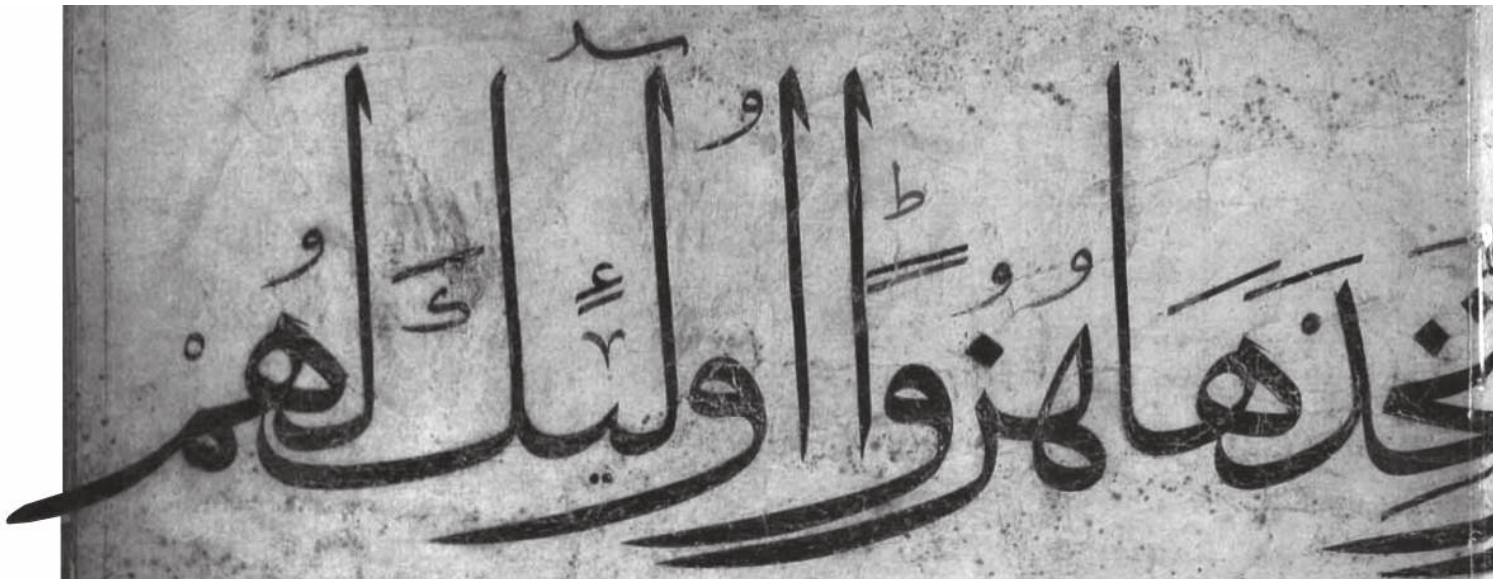 تَّخِذَهَا هُزُوًاؕ اُولٰٓئِكَ لَهُمْ